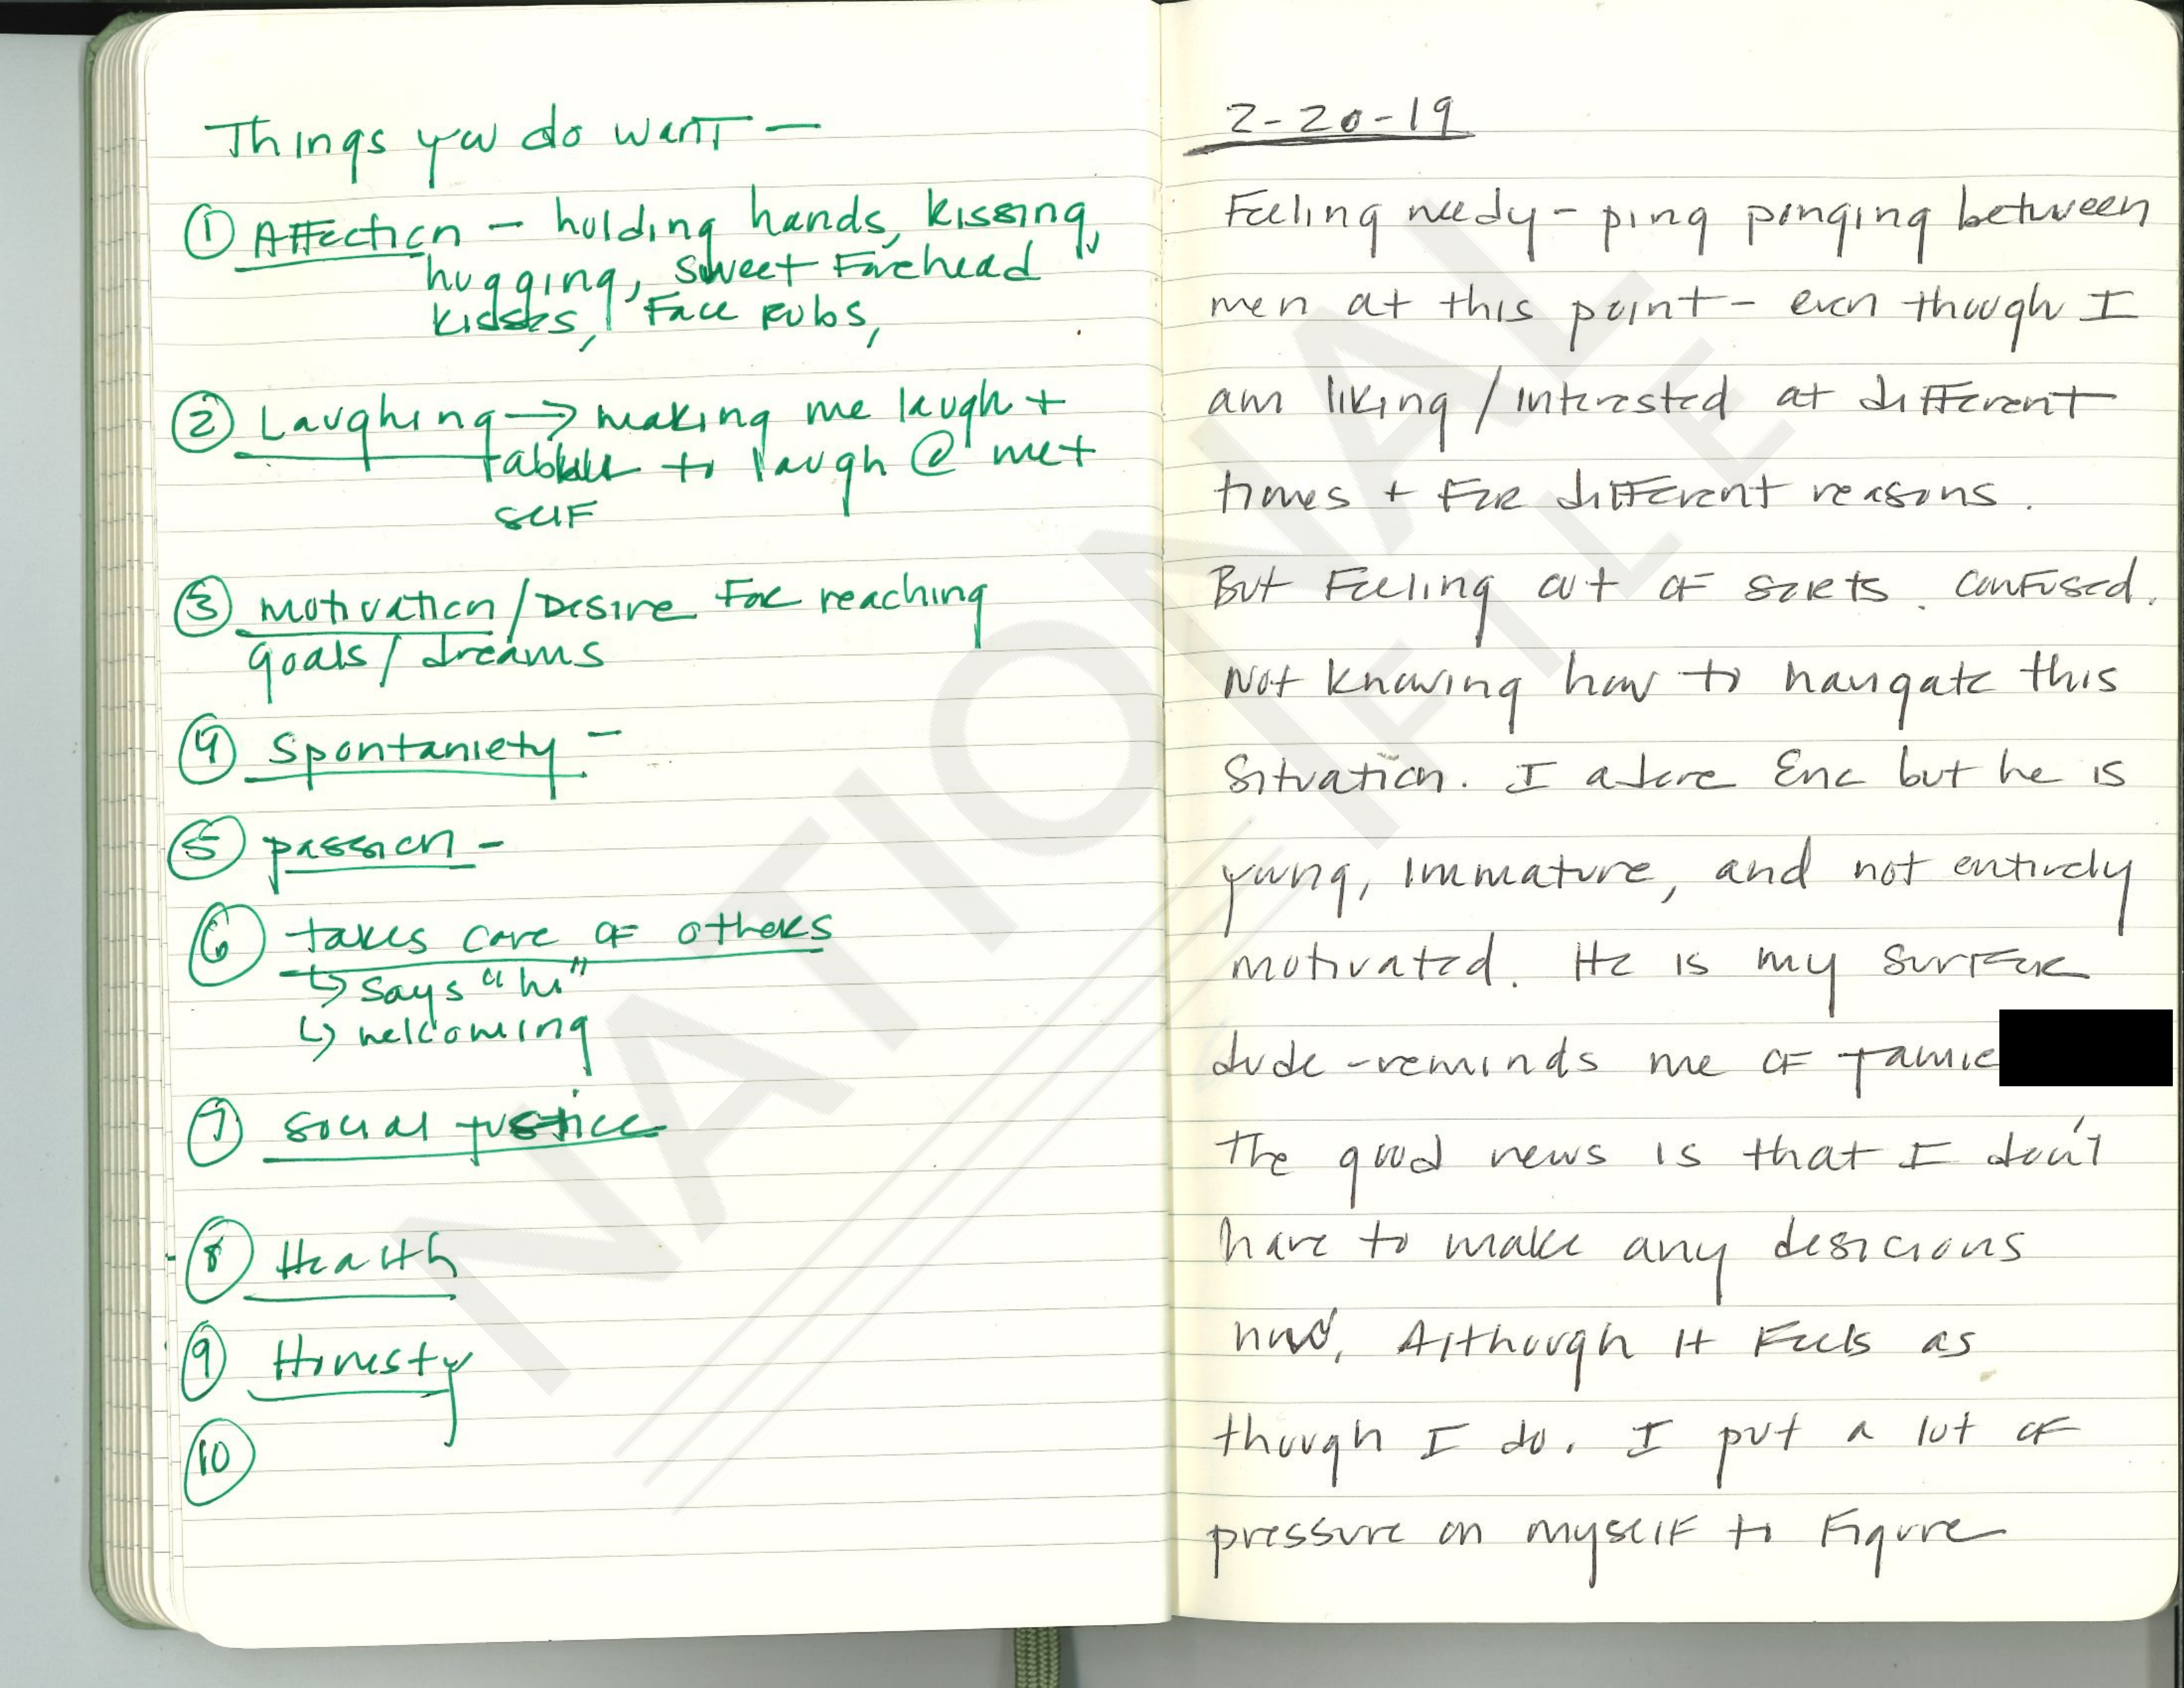 Things you do want —
① Affection - holding hands, kissing,
hugging, sweet forehead
kisses, face rubs,
② Laughing → making me laugh +
to laugh @ me +
self
③ motivation / Desire for reaching
goals / dreams
④ Spontaniety -
⑤ passion -
⑥ takes care of others
↳ says "hi"
↳ welcoming
⑦ social justice
⑧ Health
⑨ Honesty
⑩
2-20-19
Feeling needy - ping ponging between
men at this point - even though I
am liking / interested at different
times + for different reasons.
But feeling out of sorts. Confused.
Not knowing how to navigate this
situation. I adore Eric but he is
young, immature, and not entirely
motivated. He is my surfer
dude - reminds me of Jamie
The good news is that I don't
have to make any desicions
now. Although it feels as
though I do. I put a lot of
pressure on myself to figure
NATIONAL
FILE